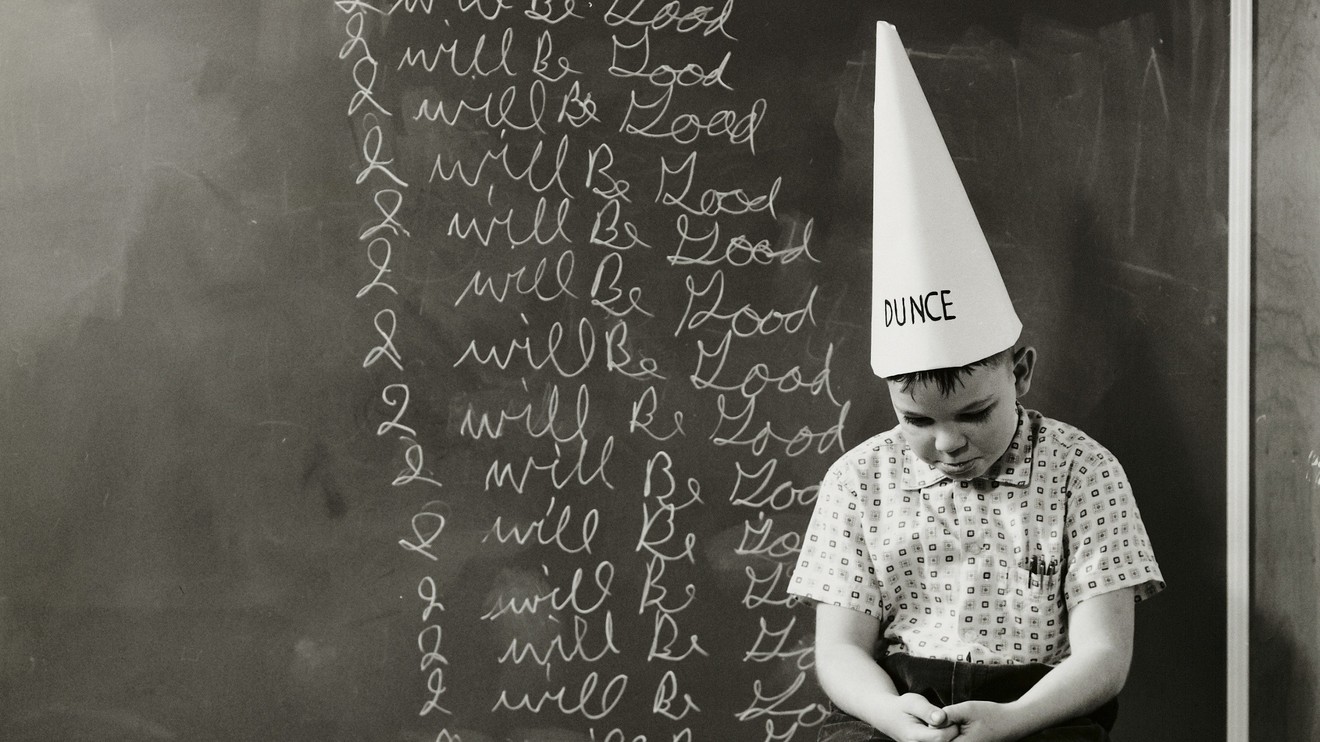 I will Be Good
I will Be Good
I will Be Good
I will Be Good
I will Be Good
I will Be Good
I will Be Good
I will Be Good
I will Be Goo
I will Be Go
I will Be Go
I will Be Go
I will Be Go
DUNCE